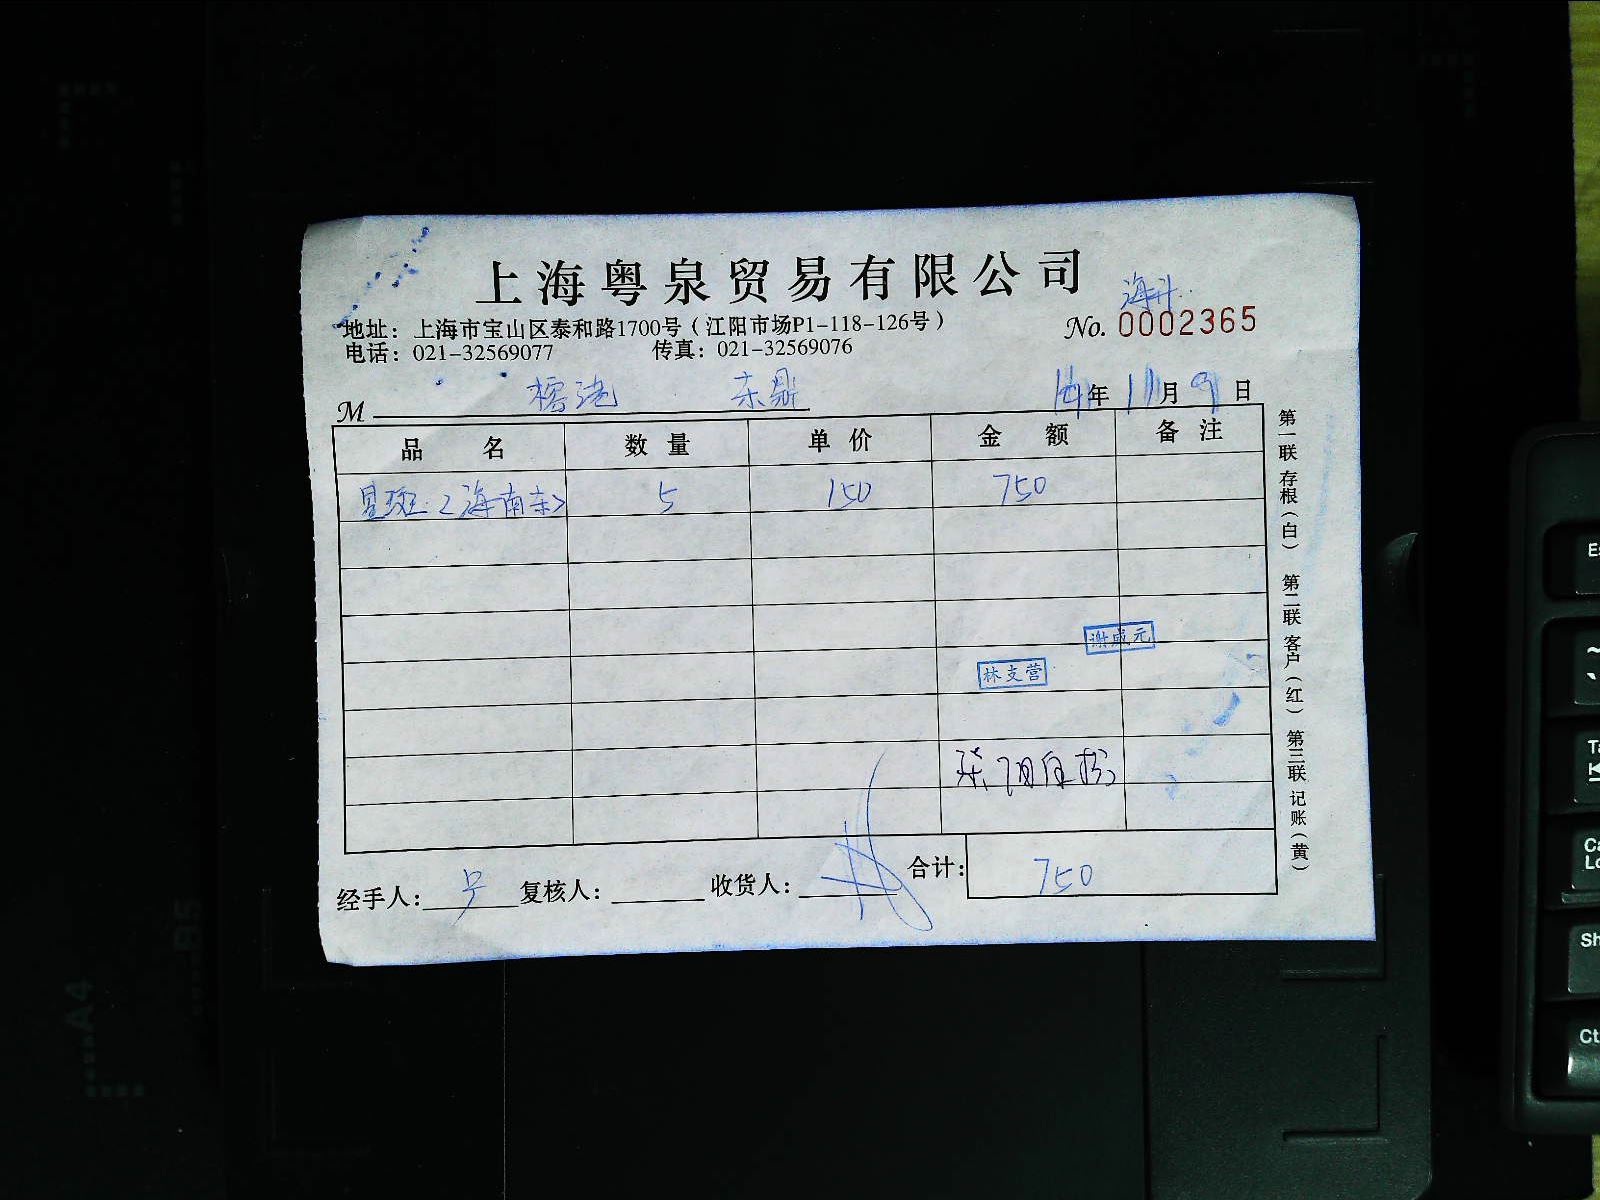 上海粤泉贸易有限公司
地址：上海市宝山区泰和路1700号（江阳市场P1-118-126号）
No. 0002365
电话：021-32569077 传真：021-32569076
M 东鼎 14年11月9日
品名 数量 单价 金额 备注
星斑（海南东） 5 150 750
谢成元
林支营
合计： 750
经手人： 复核人： 收货人：
第一联 存根（白） 第二联 客户（红） 第三联 记账（黄）
A4
B5